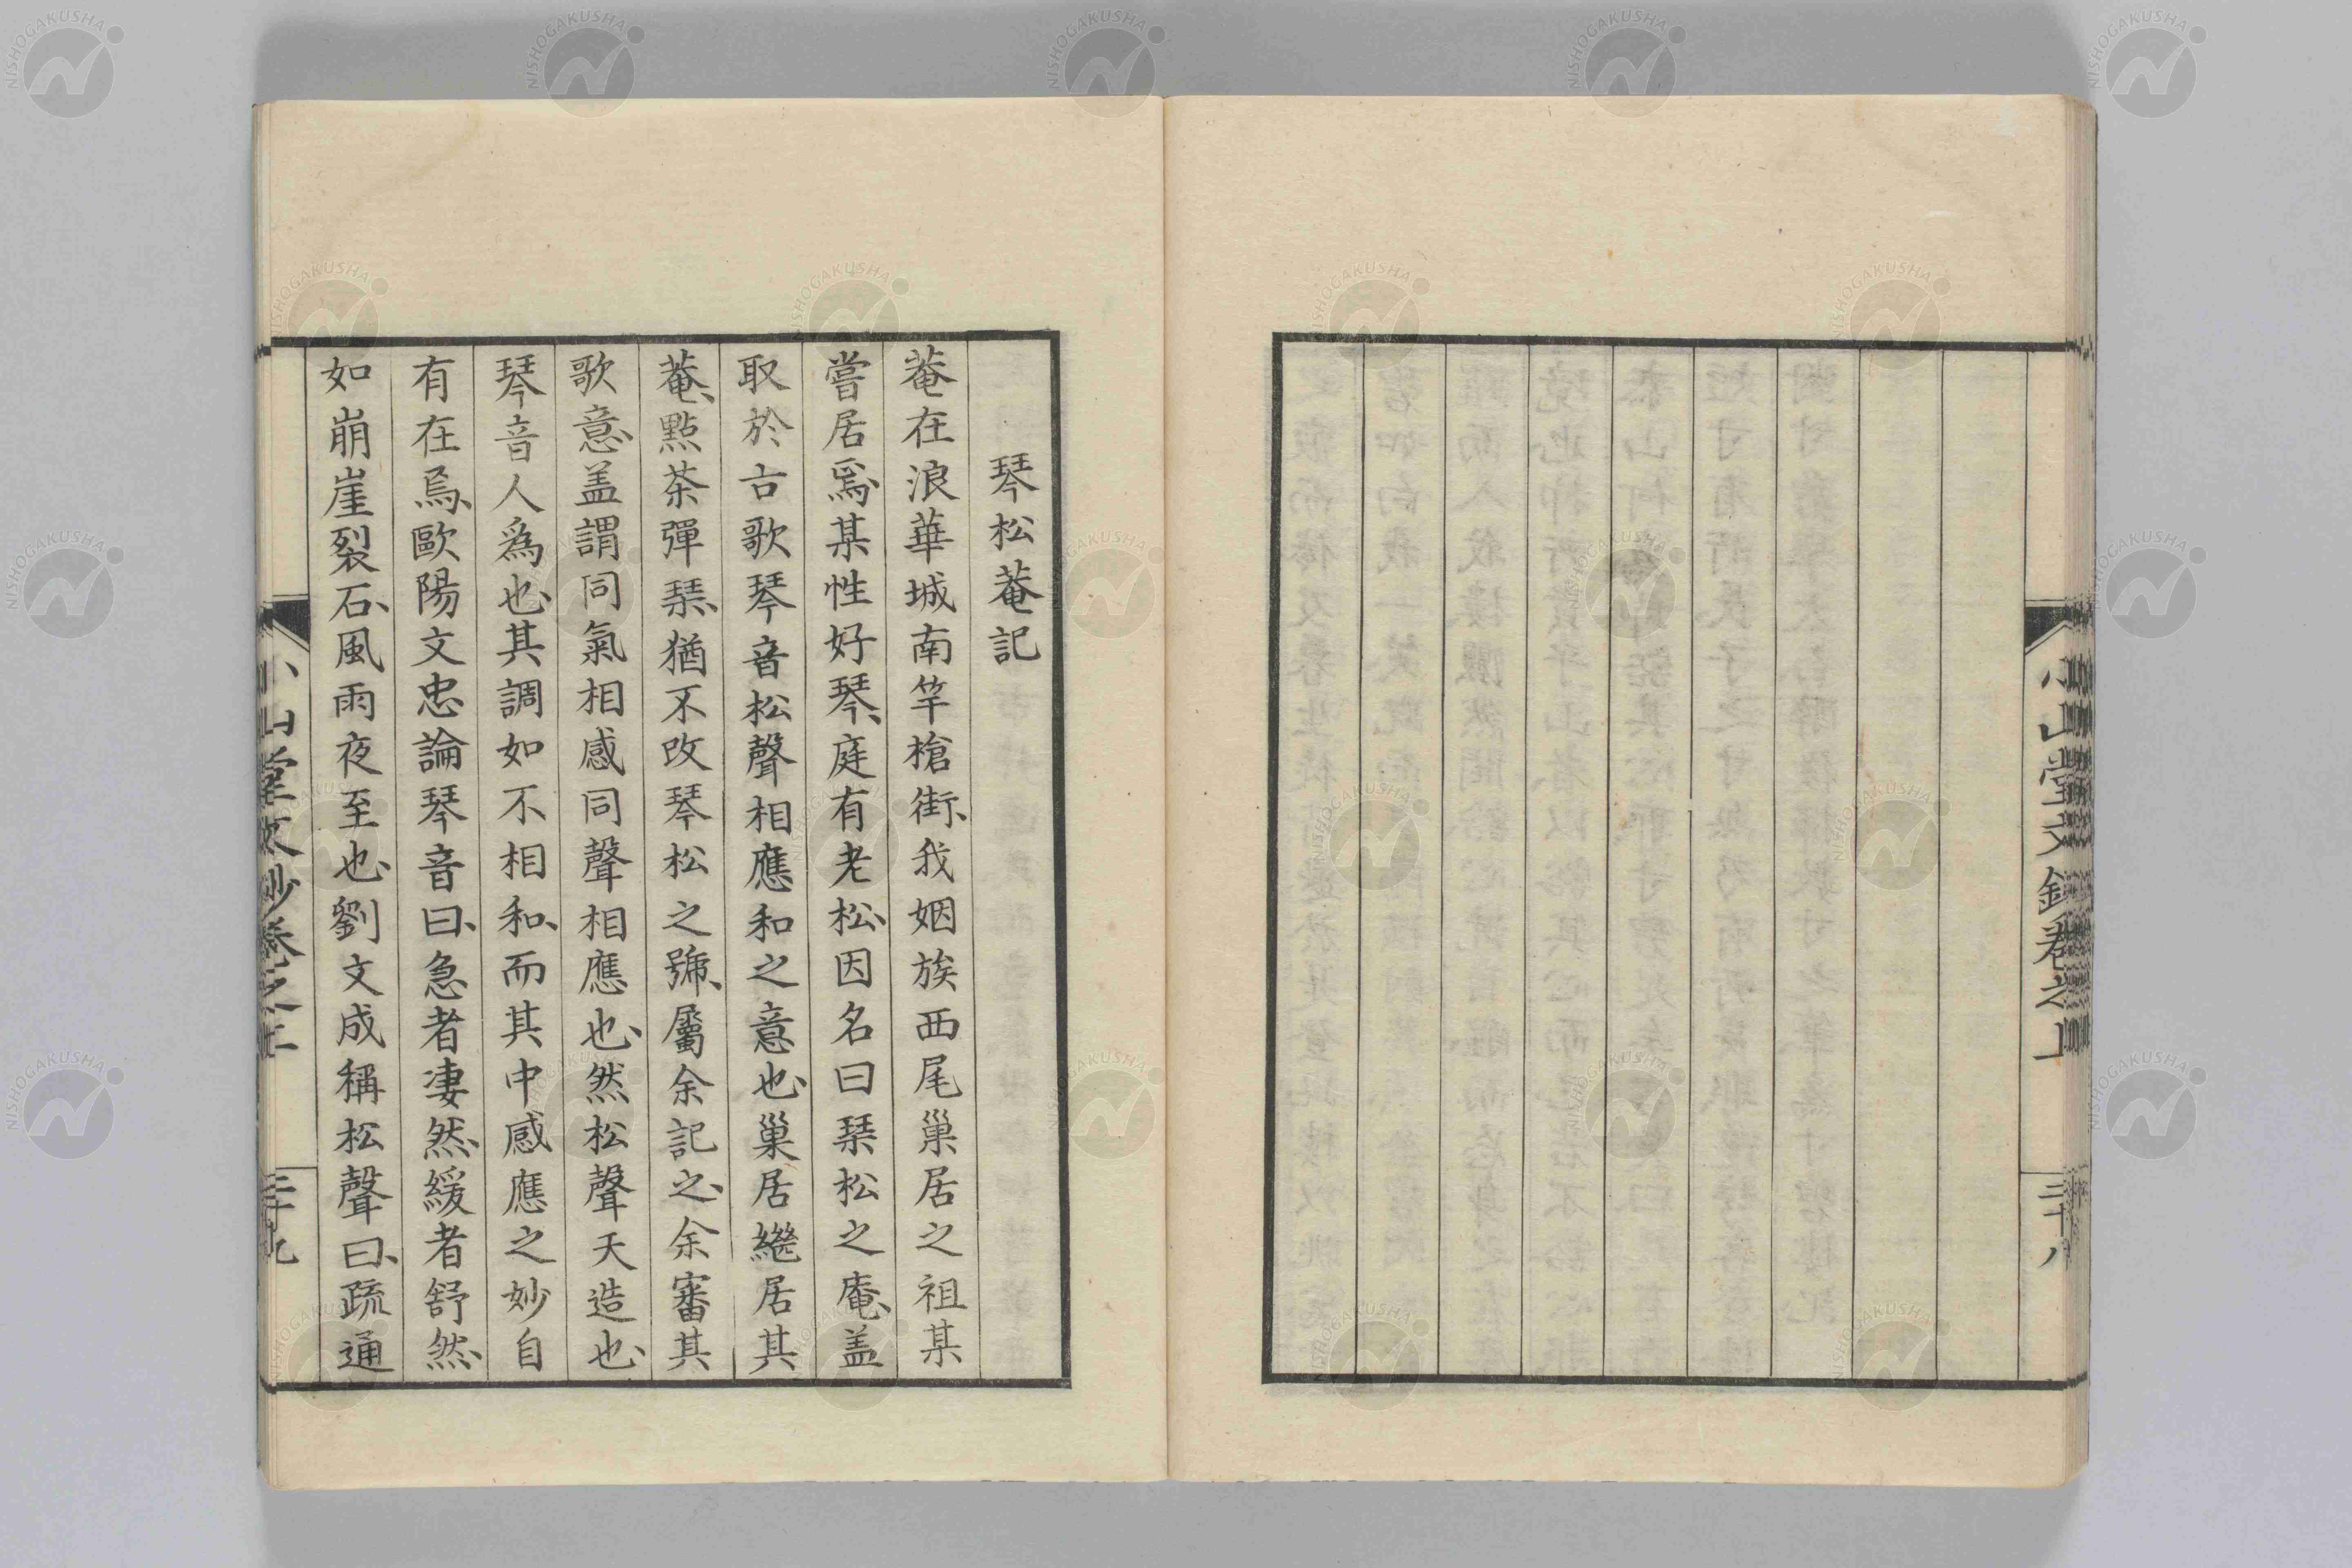 小山堂文鈔卷之上
三十八
琴松菴記
菴在浪華城南竿槍街、我姻族西尾巢居之祖某
嘗居焉、某性好琴、庭有老松、因名曰琹松之庵、盖
取於古歌琴音松聲相應和之意也、巢居繼居其
菴、點茶彈琹、猶不改琴松之號、屬余記之、余審其
歌意、盖謂同氣相感同聲相應也、然松聲天造也、
琴音人爲也、其調如不相和、而其中感應之妙自
有在焉、歐陽文忠論琴音曰、急者凄然、緩者舒然、
如崩崖裂石、風雨夜至也、劉文成稱松聲曰、疏通
小山堂文鈔卷之上
三十九
NISHOGAKUSHA